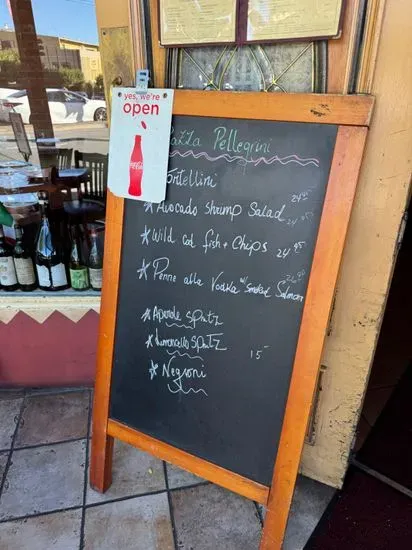 yes, we're
open
Coca-Cola
Pazza Pellegrini
Tortellini 24 95
*Avocado Shrimp Salad 24 95
*Wild cod fish + Chips 24 95
*Penne alla Vodka w/ Smoked Salmon
*Aperole Spritz
*Lemoncello Spritz 15-
*Negroni